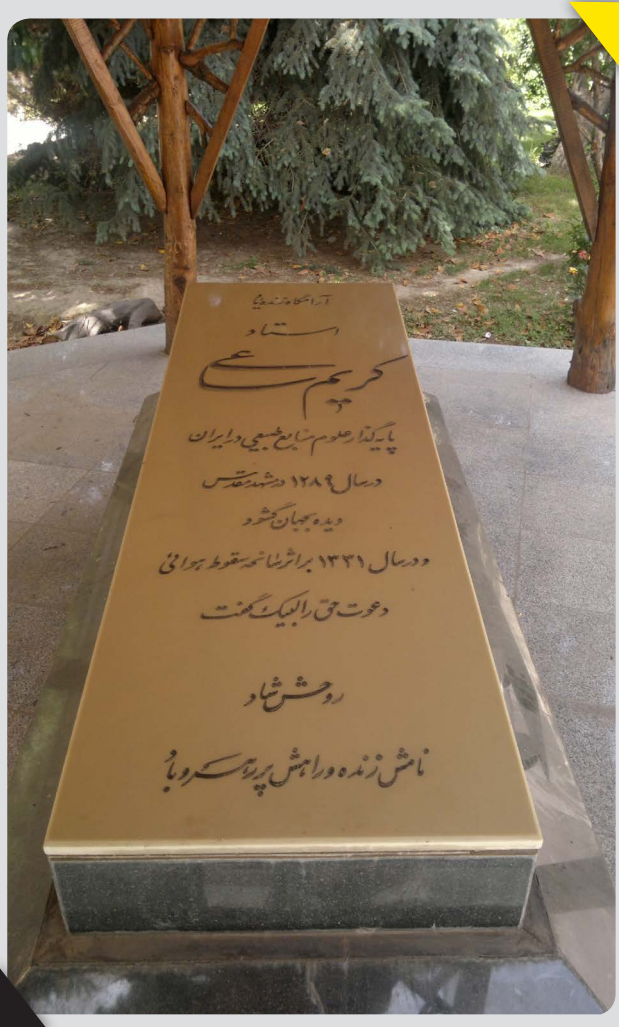 آرامگاه زنده‌یاد
استاد
کریم ساعی
پایه‌گذار علوم منابع طبیعی در ایران
در سال ۱۲۸۹ در مشهد مقدس
دیده بجهان گشود
و در سال ۱۳۳۱ بر اثر سانحه سقوط هوائی
دعوت حق را لبیک گفت
روحش شاد
نامش زنده و راهش پر رهرو باد